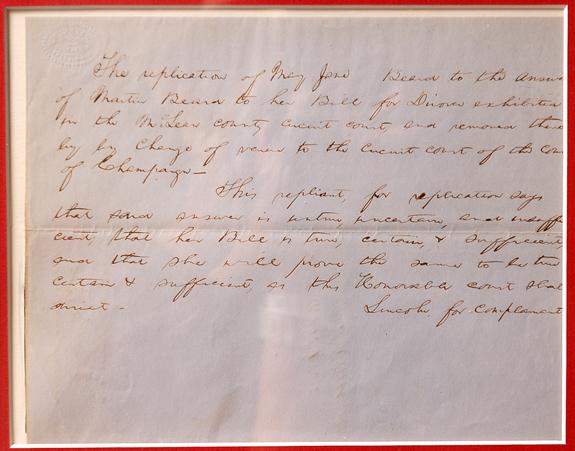 The replication of May Jane Beard to the answe
of Martin Beard to her Bill for Divorce exhibited
in the McLean county circuit court, and removed there
by by change of venue to the circuit court of the cou
of Champaign—
This repliant, for replication says
that said answer is untrue, uncertain, and insuffi
cient, that her Bill is true, certain, & sufficient,
and that she will prove the same to be true
certain & sufficient, as this Honorable court shal
direct—
Lincoln, for complainant